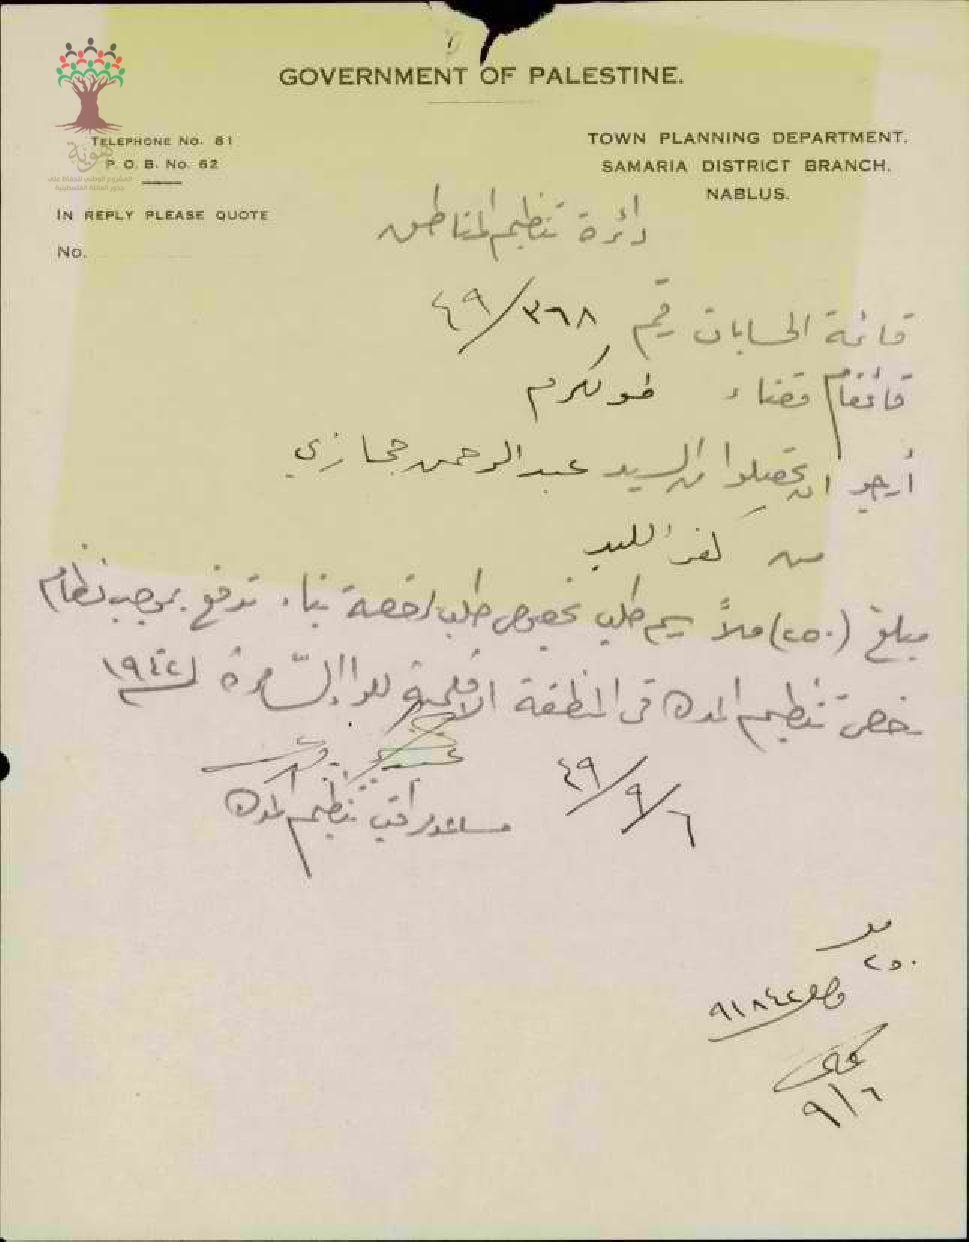 GOVERNMENT OF PALESTINE.
TELEPHONE No. 81
P. O. B. No. 62
IN REPLY PLEASE QUOTE
No.
TOWN PLANNING DEPARTMENT.
SAMARIA DISTRICT BRANCH.
NABLUS.
كينونة
دائرة تنظيم المناطق
قائمة الحسابات رقم ٤٩/٣٦٨
قائمقام قضاء طولكرم
أرجو ان تحصلوا من السيد عبد الرحمن حجازي
من كفر اللبد
مبلغ (٢٥٠) ملاً رسم طلب بخصوص طلب رخصة بناء تدفع بموجب نظام
تنظيم المدن في المنطقة الاقليمية للواء السامرة ١٩٤٢
مساعد مراقب تنظيم المدن
٤٩/٩/٦
٢٥٠
٩١٨٤٢
٩/٦